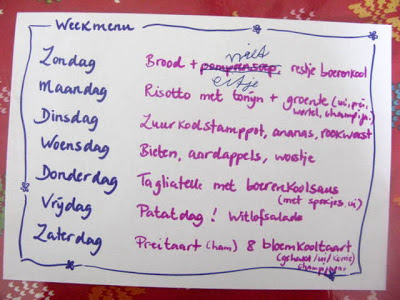 Weekmenu
Zondag Brood + pompoensoep niet eitje restje boerenkool
Maandag Risotto met tonijn + groente (ui, prei,
wortel, champig.)
Dinsdag Zuurkoolstamppot, ananas, rookworst
Woensdag Bieten, aardappels, worstje
Donderdag Tagliatelle met boerenkoolsaus
(met spekjes, ui)
Vrijdag Patatdag! Witlofsalade
Zaterdag Preitaart (ham) & bloemkooltaart
(gehakt/ui/kerrie)
champignons